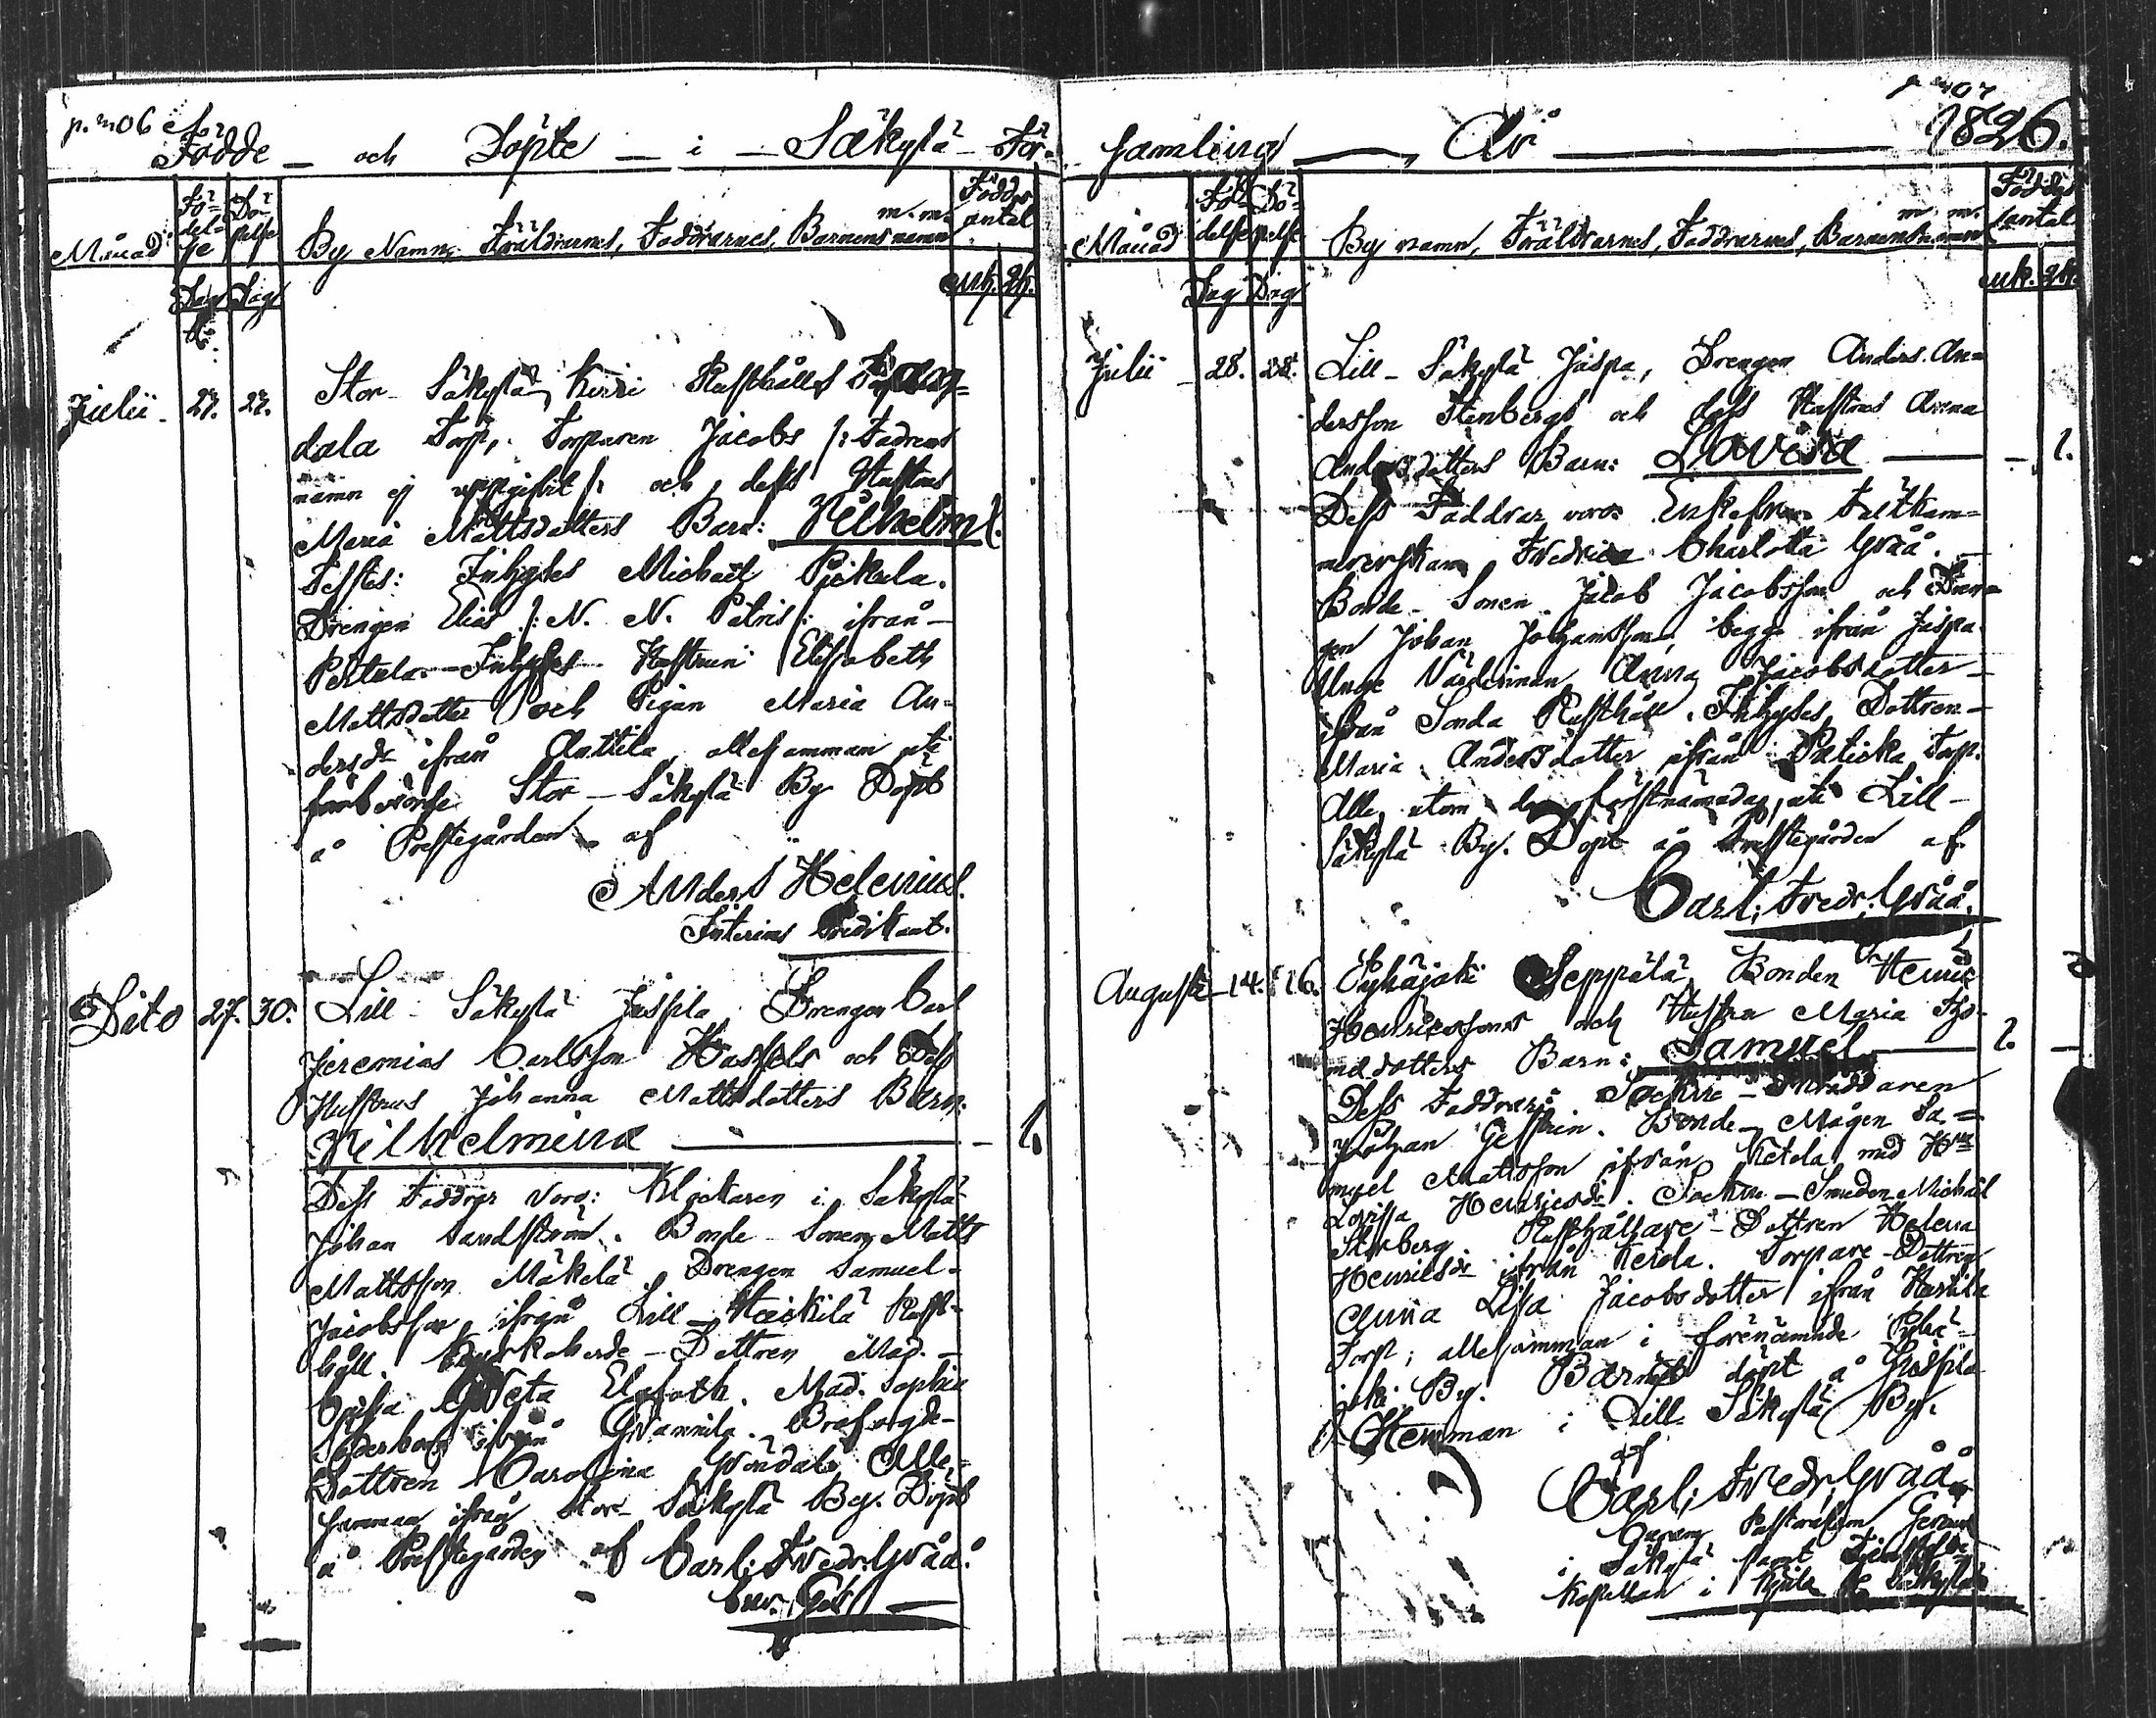 p. 206
Födde och Döpte i Säkylä För-
Månad
Fö-
del-
se
Dö-
pelse
By Namn, Föräldrarnes, Faddrarnes, Barnens namn m. m.
Föddes
antal
Dag Dag
Mk. Qk.
Julii 27. 27. Stor Säkylä Kirri Rusthålls
dala Torp, Torparen Jacobs /: Fadrens
namn ej uppgifvit :/ och dess Hustrus
Maria Mattsdotters Barn: Wilhelm 1.
Testes: Inhyses Michael
Drengen Elias /: N. N. Patris :/ ifrån
Inhyses Hustrun Elisabeth
Mattsdotter och Pigan Maria An-
dersdr ifrån Anttila, allesamman uti
Stor Säkylä By Döpt
å Prestegården af
Anders Helenius.
Interims Predikant.
Dito 27. 30. Lill Säkylä Juspila Drengen Carl
Jeremias Carlsson Hassels och Dess
Hustrus Johanna Mattsdotters Barn:
Wilhelmina 1.
Dess Faddrar voro: Klockaren i Säkylä
Johan Sandström. Bonde Sonen Matts
Mattsson Mäkelä, Drengen Samuel
Jacobsson ifrån Lill Heikilä Rust-
håll. Dottren Mad.
Elgfoth. Mad. Sophia
Söderborg ifrån
Dottren Carolina Gröndahl Alle-
samman ifrån Stor Säkylä By. Döpt
å Prestegården af Carl. Fredr. Gråå.
p. 207
samling År 1826.
Månad
Fö-
delse
Dö-
pelse
By namn, Föräldrarnes, Faddrarnes, Barnens namn m. m.
Föddes
antal
Dag Dag
Mk. Qk.
Julii 28. 28. Lill Säkylä Juspa, Drengen Anders An-
dersson Stenbergs och dess Hustrus Anna
Andersdotters Barn: Lovisa 1.
Dess Faddrar voro Enkefru Fältkam-
rerskan Fredrica Charlotta Gråå.
Bonde Sonen Jacob Jacobsson och Dren-
gen Johan Johansson, begge ifrån Juspa.
Unge Värdinnan Anna Jacobsdotter
ifrån Sonda Rusthåll. Inhyses Dottren
Maria Andersdotter ifrån Torp.
Alle, utom den förstnämnda, uti Lill
Säkylä By. Döpt å Prestegården af
Carl. Fredr. Gråå.
Augusti 14. 16. Pyhäjoki Seppälä Bonden Henric
Henricssons och Hustru Maria Tho-
mædotters Barn: Samuel 1.
Dess Faddrar: Sockne Skräddaren
Johan Gestrin. Bonde Mågen Sa-
muel Mattsson ifrån Ketola med Hu
Lovissa Henricsdr. Sockne Smeden Michael
Storberg Rusthållare Dottren Helena
Henricsdr ifrån Ketola. Torpare Dottren
Anna Lisa Jacobsdotter ifrån
Torp; allesamman i förenämnde Pyhä-
joki By. Barnet döpt å Juspila
Hemman i Lill Säkylä By.
af
Carl. Fredr. Gråå
i Säkylä samt
Kapellan i Kjula